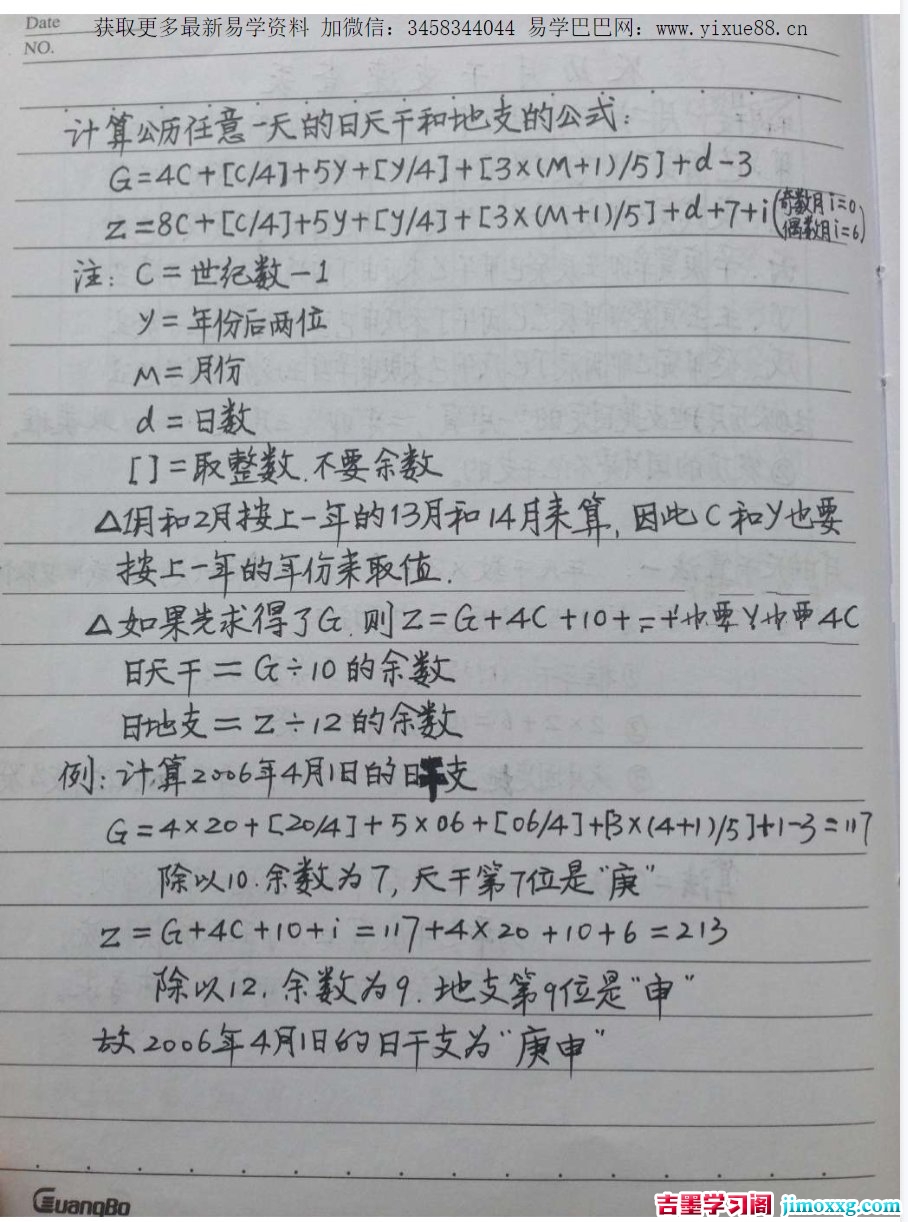 Date
获取更多最新易学资料 加微信：3458344044 易学巴巴网：www.yixue88.cn
NO.
计算公历任意一天的日天干和地支的公式：
G=4C+[C/4]+5y+[y/4]+[3×(M+1)/5]+d-3
Z=8C+[C/4]+5y+[y/4]+[3×(M+1)/5]+d+7+i(奇数月i=0
偶数月i=6)
注：C=世纪数-1
y=年份后两位
M=月份
d=日数
[]=取整数.不要余数
△1月和2月按上一年的13月和14月来算,因此C和y也要
按上一年的年份来取值.
△如果先求得了G.则Z=G+4C+10+
日天干=G÷10的余数
日地支=Z÷12的余数
例:计算2006年4月1日的日支
G=4×20+[20/4]+5×06+[06/4]+[3×(4+1)/5]+1-3=117
除以10.余数为7,天干第7位是"庚"
Z=G+4C+10+i=117+4×20+10+6=213
除以12.余数为9.地支第9位是"申"
故2006年4月1日的日干支为"庚申"
GuangBo
吉墨学习阁 jimoxxg.com